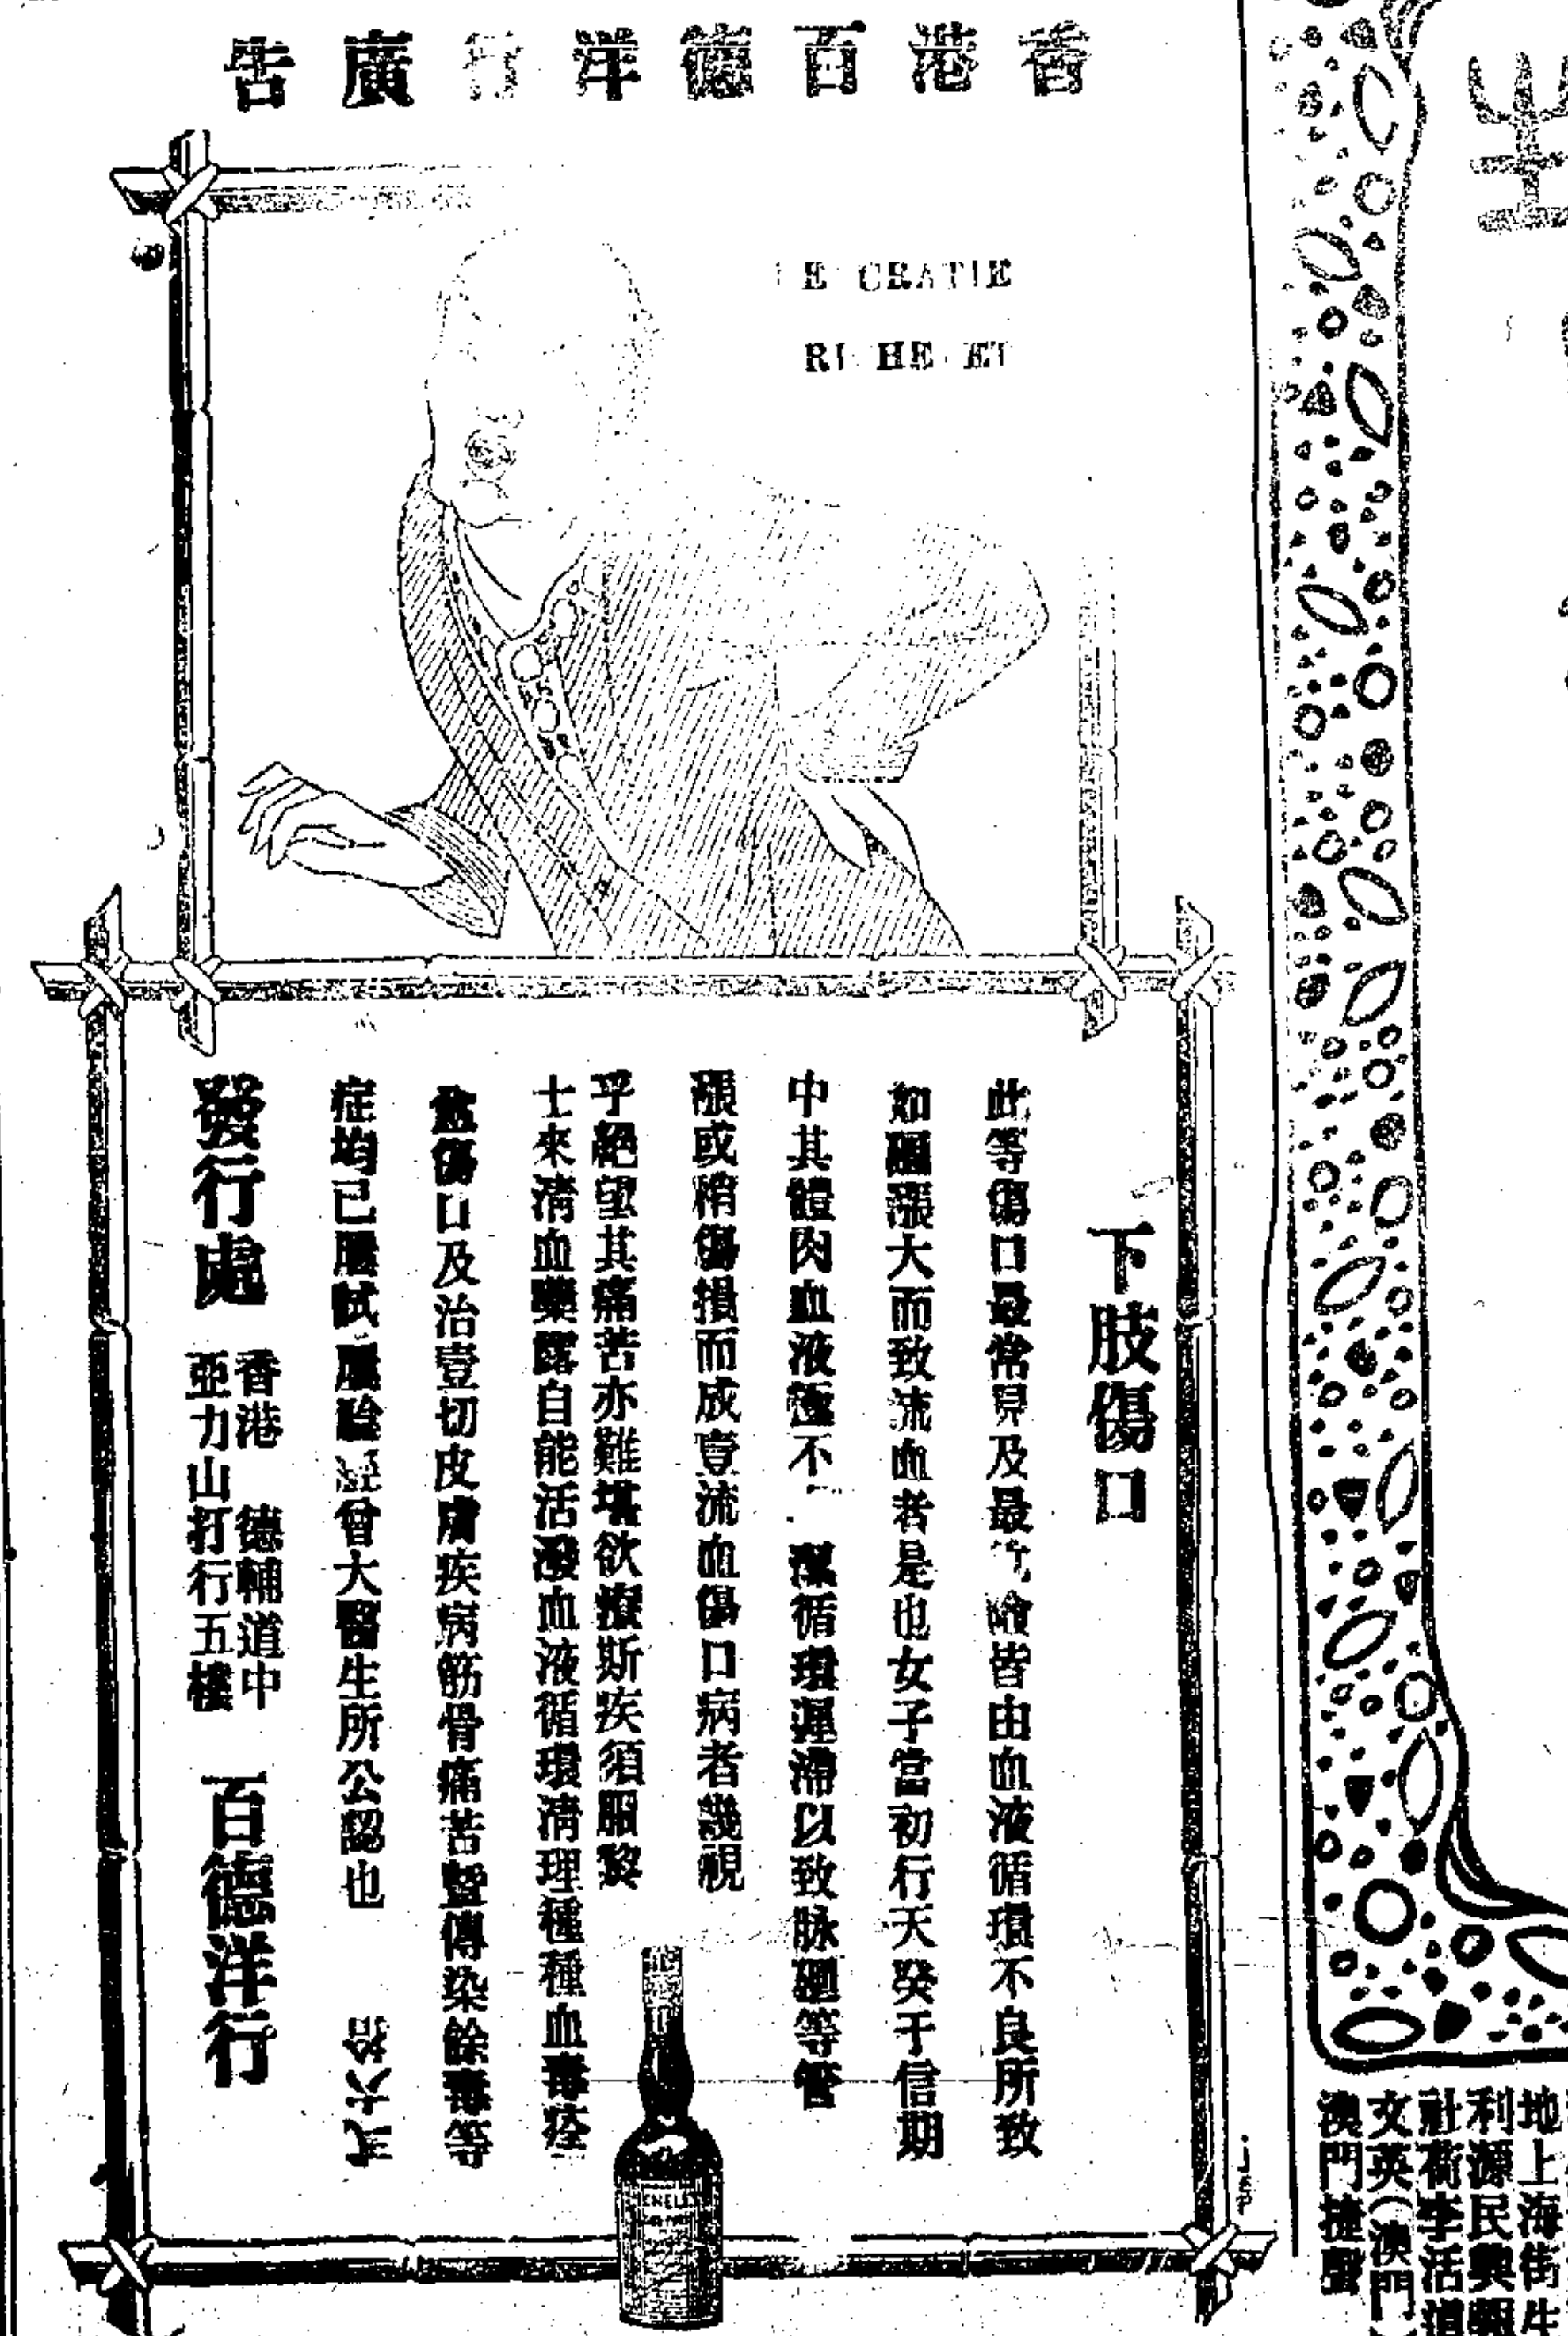 香港百德洋行廣告
下肢傷口
此等傷口最常見及最 皆由血液循環不良所致
如 漲大而致流血者是也女子當初行天癸于信期
中其體肉血液極不 潔循環遲滯以致脉 等管
漲或稍傷損而成壹流血傷口病者幾視
乎絕望其痛苦亦難堪欲療斯疾須服黎
士來清血藥露自能活潑血液循環清理種種血毒痊
愈傷口及治壹切皮膚疾病筋骨痛苦暨傳染餘毒等
症均已屢試屢驗經曾大醫生所公認也
弍六拾
發行處
香港 德輔道中
亞力山打行五樓
百德洋行
地上海街
利源民興
社荷李活道
文英(澳門)
澳門捷聲